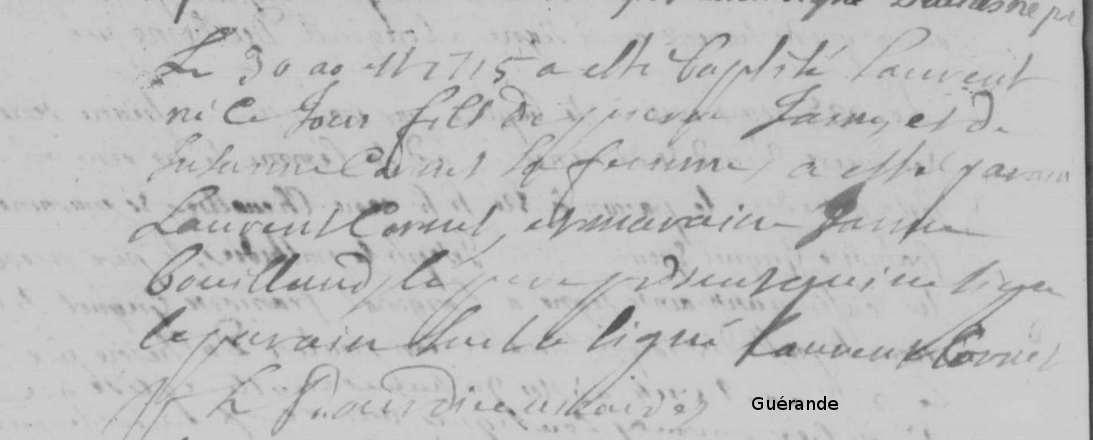 Le 30 aoust 1715 a esté baptisé Laurent
né ce jour fils de pierre James et de
Susanne Cornet sa femme, a esté parain
Laurent Cornet, et maraine Janne
bouillaud, le pere present qui ne signe
le parain seul a signé Laurent Cornet
Guérande